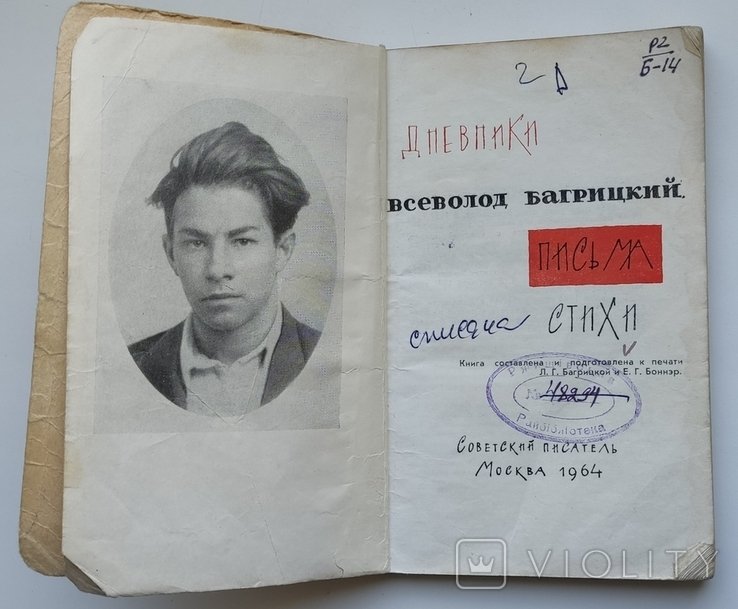 Р2
Б-14
2
ДНЕВНИКИ
ВСЕВОЛОД БАГРИЦКИЙ.
ПИСЬМА
СТИХИ
списана
Книга составлена и подготовлена к печати
Л. Г. Багрицкой и Е. Г. Боннэр.
№ 48294
Райбібліотека
СОВЕТСКИЙ ПИСАТЕЛЬ
МОСКВА 1964
VIOLITY